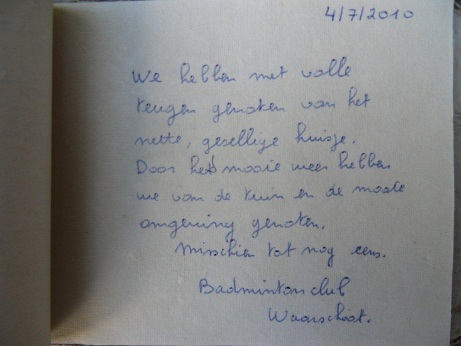 4/7/2010
We hebben met volle
teugen genoten van het
nette, gezellige huisje.
Door het mooie weer hebben
we van de tuin en de mooie
omgeving genoten.
Misschien tot nog eens.
Badmintonclub
Waarschoot.